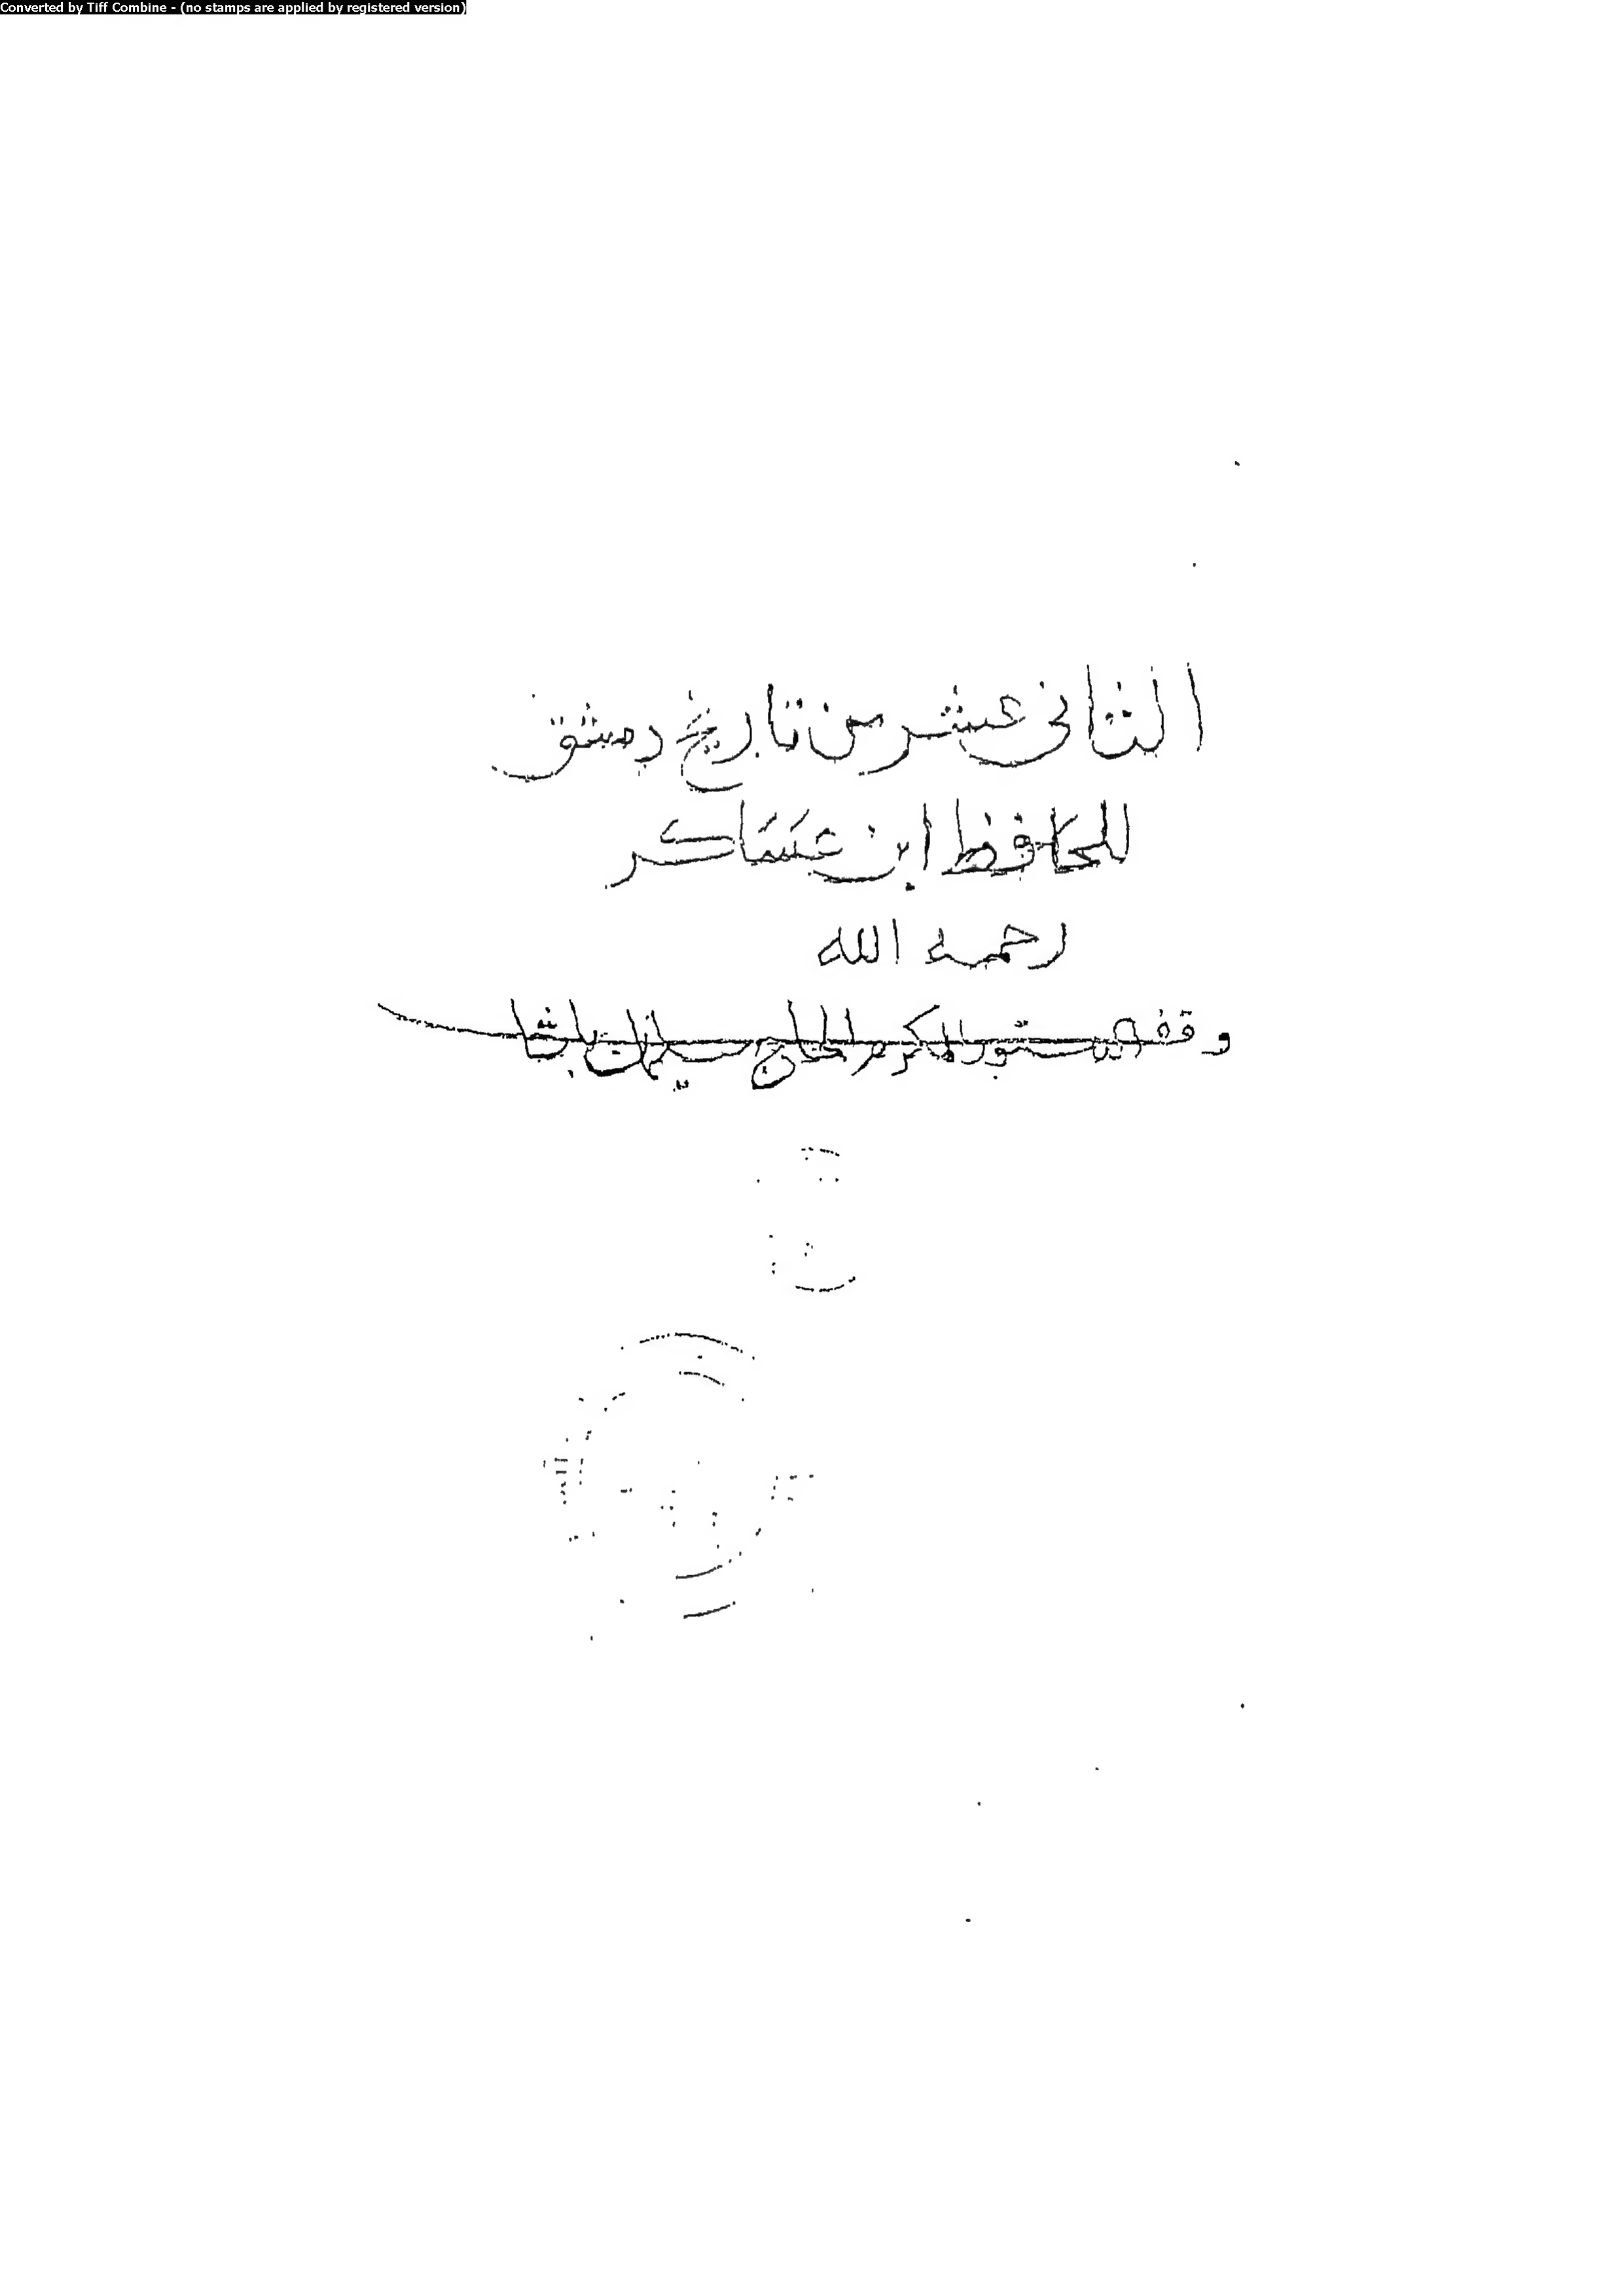 Converted by Tiff Combine - (no stamps are applied by registered version)
الثانى عشر من تاريخ دمشق
للحافظ ابن عساكر
رحمه الله
وقف الدستور المكرم الحاج سليمان باشا